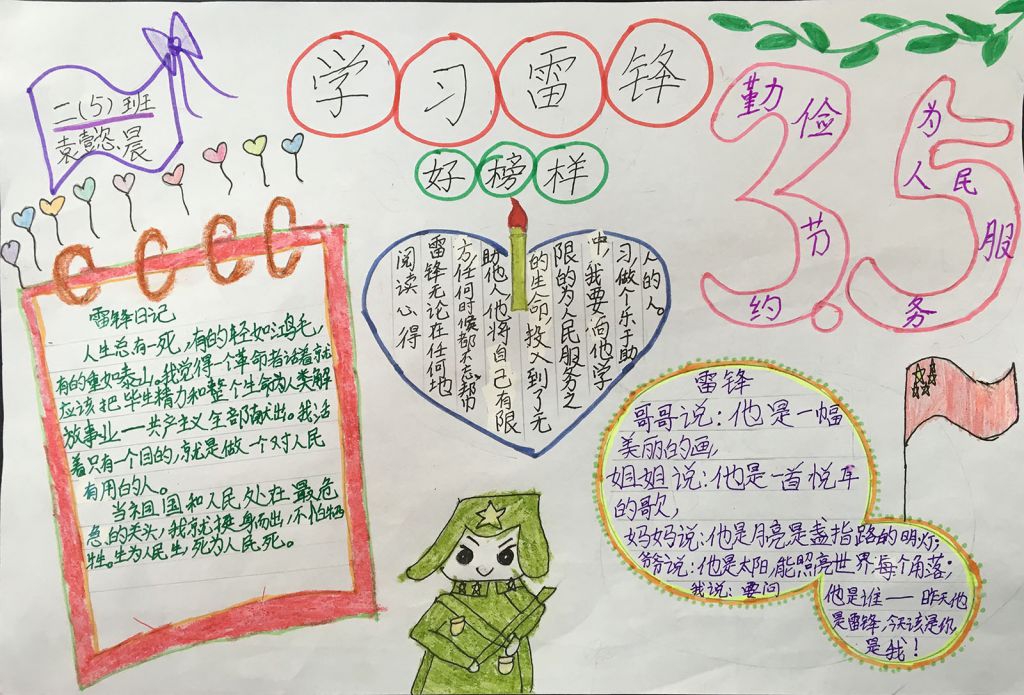 二(5)班
袁懿晨
学习雷锋
好榜样
勤俭节约
为人民服务
3.5
雷锋日记
人生总有一死,有的轻如鸿毛,
有的重如泰山。我觉得一个革命者活着就
应该把毕生精力和整个生命为人类解
放事业一一共产主义全部献出。我活
着只有一个目的,就是做一个对人民
有用的人。
当祖国和人民处在最危
急的关头,我就挺身而出,不怕牺
牲。生为人民生,死为人民死。
阅读心得
雷锋无论在任何地
方,任何时候都不忘帮
助他人,他将自己有限
的生命,投入到了无
限的为人民服务之
中,我要向他学
习,做个乐于助
人的人。
雷锋
哥哥说:他是一幅
美丽的画,
姐姐说:他是一首悦耳
的歌,
妈妈说:他是月亮是盏指路的明灯;
爷爷说:他是太阳,能照亮世界每个角落;
我说:要问
他是谁一一昨天他
是雷锋,今天该是你
是我!